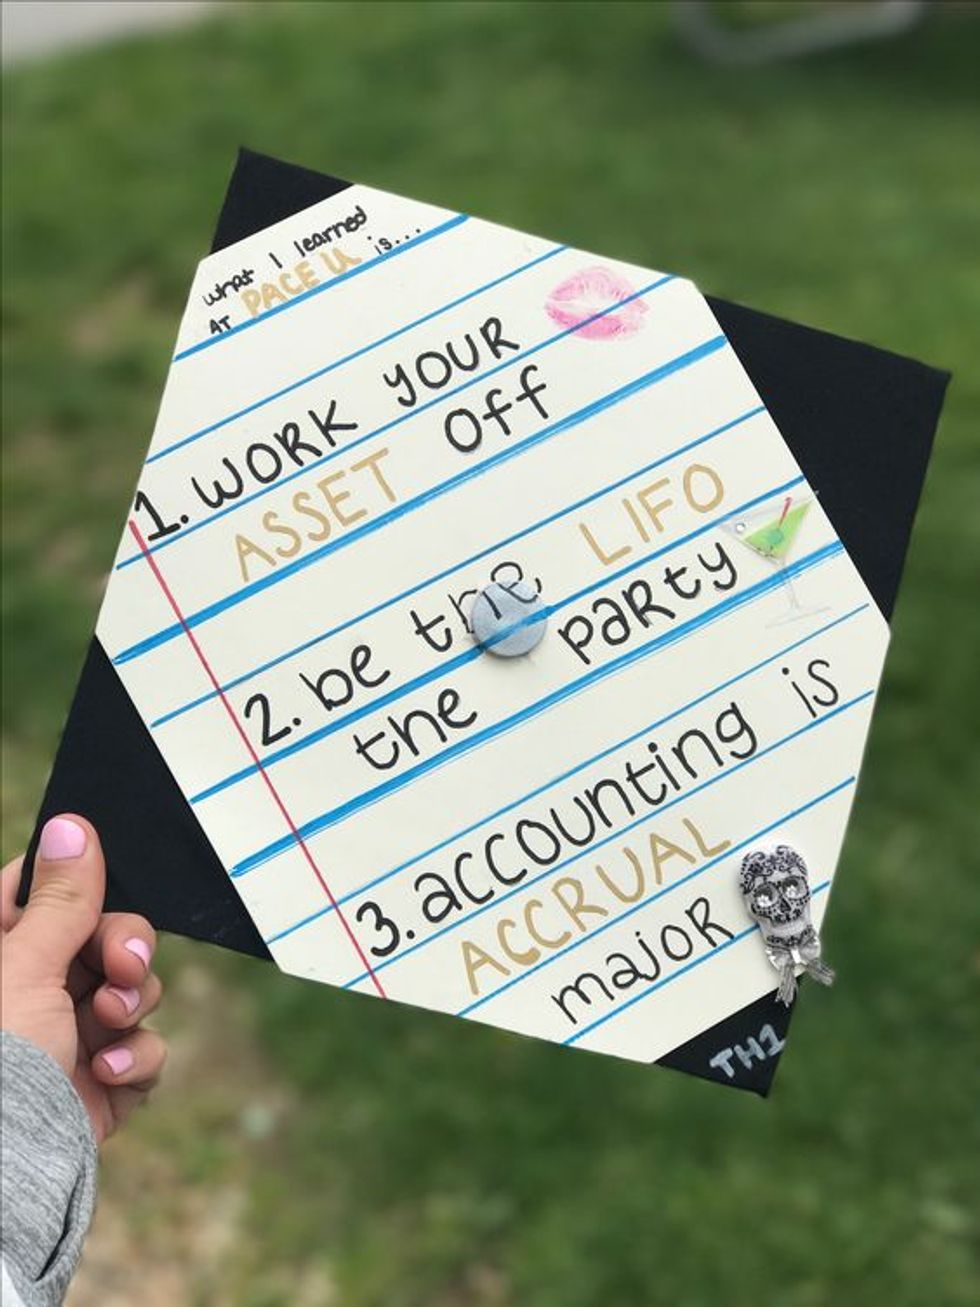 what I learned
AT PACE U is...
1. WORK YOUR
ASSET Off
2. be the LIFO
the paRty
3. accounting is
ACCRUAL
majoR
TH1